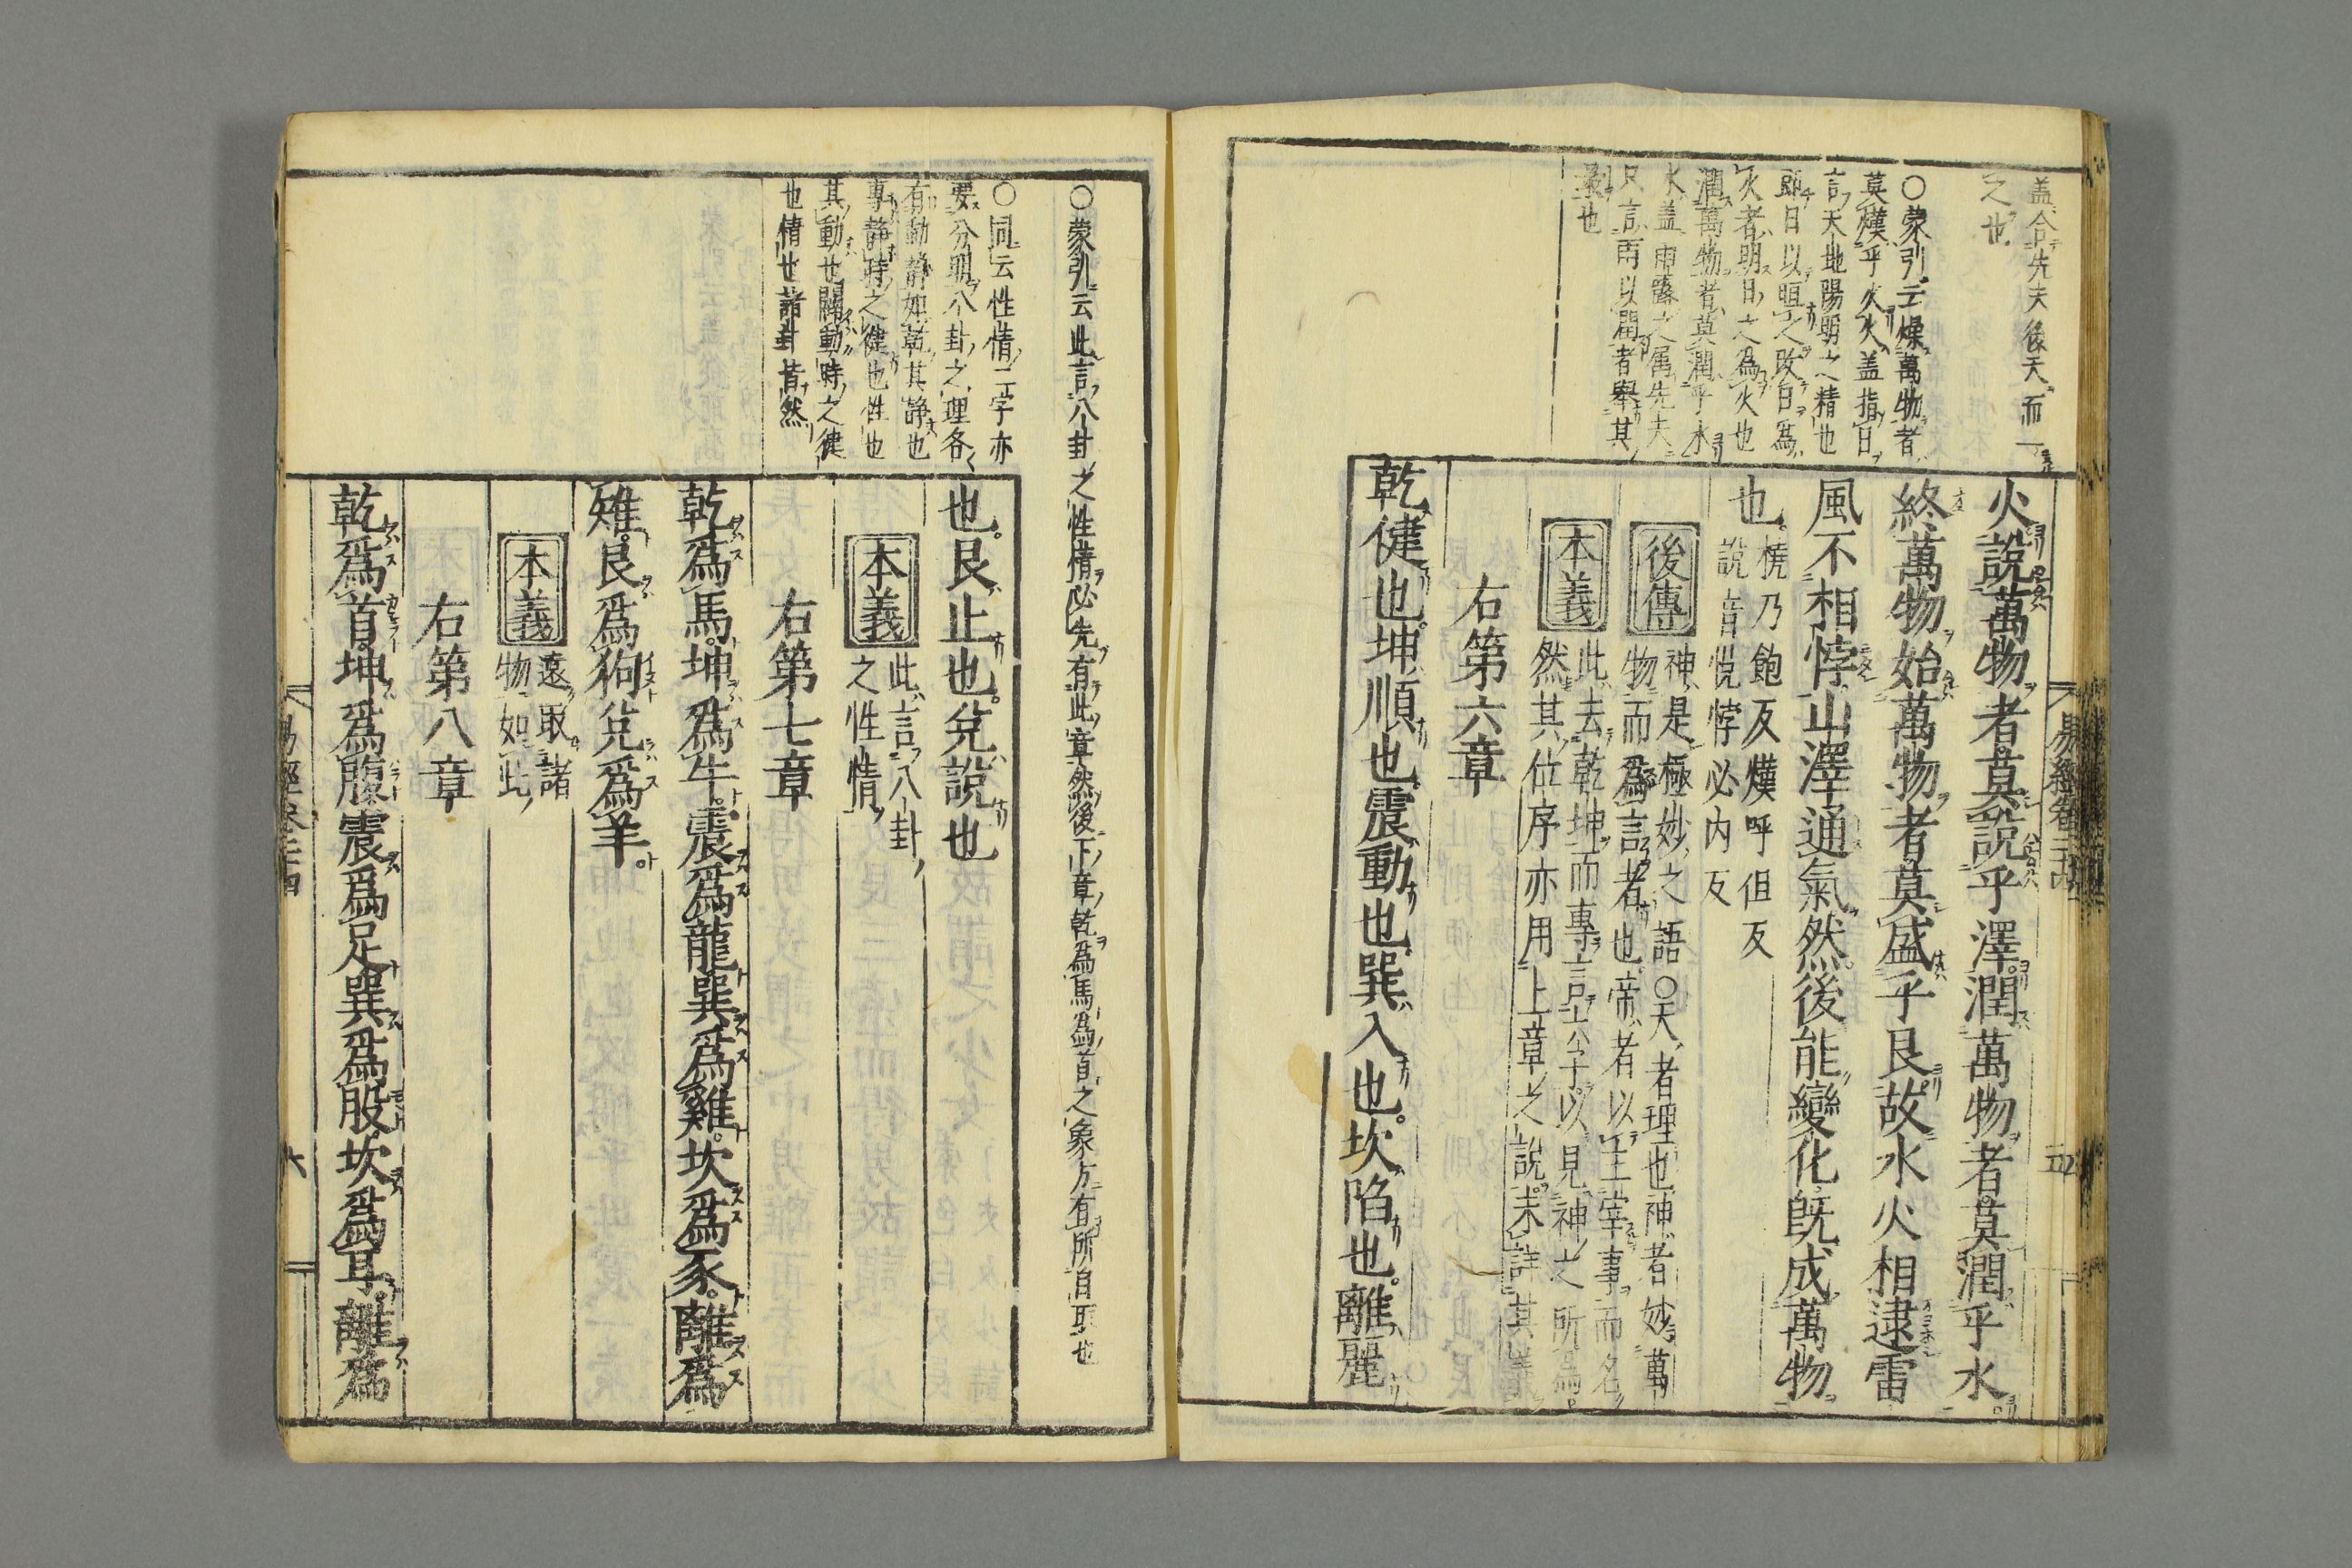 蓋合先天後天而一
之也
○蒙引云燥萬物者
莫熯乎火火蓋指日
言天地陽明之精也
即日以晅之故曰爲
火者明日之為火也
潤萬物者莫潤乎水
水蓋雨露之属先天
只言雨以潤者舉其
最也
易經卷二十四
五
火說萬物者莫說乎澤潤萬物者莫潤乎水
終萬物始萬物者莫盛乎艮故水火相逮雷
風不相悖山澤通氣然後能變化既成萬物
也
橈乃飽反熯呼但反
說音悅悖必內反
後傳
神是極妙之語○天者理也神者妙萬
物而爲言者也帝者以主宰事而名
本義
此去乾坤而專言六子以見神之所為
然其位序亦用上章之說未詳其義
右第六章
乾健也坤順也震動也巽入也坎陷也離麗
○蒙引云此言八卦之性情必先有此章然後下章乾為馬為首之象方有所自取也
○同云性情二字亦
要分明八卦之理各
有動靜如乾其静也
專静時之健也性也
其動也闢動時之健
也情也諸卦皆然
也艮止也兌說也
本義
此言八卦
之性情
右第七章
乾爲馬坤爲牛震爲龍巽爲雞坎爲豕離爲
雉艮爲狗兌爲羊
本義
遠取諸
物如此
右第八章
乾爲首坤爲腹震爲足巽爲股坎爲耳離爲
易經卷二十四
六